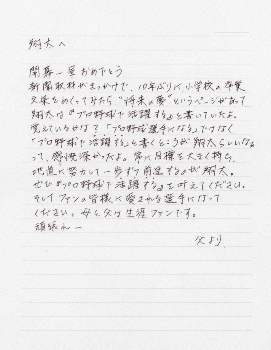 翔太へ
開幕一軍おめでとう
新聞取材がきっかけで、10年ぶりに小学校の卒業
文集をめくってみたら"将来の夢"というページがあって
翔太は『プロ野球で活躍する』と書いていたよ。
覚えているかな?『プロ野球選手になる』ではなく
『プロ野球で活躍する』と書くところが翔太らしいなあ
って、感慨深かったよ。常に目標を大きく持ち、
地道に努力して一歩ずつ前進するのが翔太。
ぜひ『プロ野球で活躍する』を叶えてください。
そしてファンの皆様に愛される選手になって
ください。母と父は生涯ファンです。
頑張れー
父より